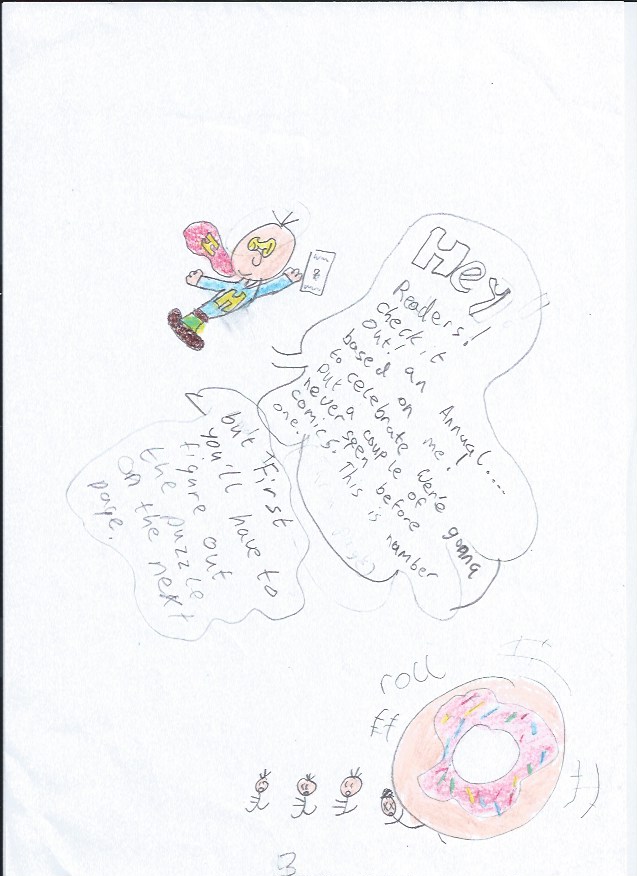 H
H
Hey
Readers!
check it
out! an Annual....
based on me!
to celebrate We're gonna
put a couple of
never seen before
comics. This is number
one.
but First
you'll have to
figure out
the puzzle
on the next
page.
roll
3